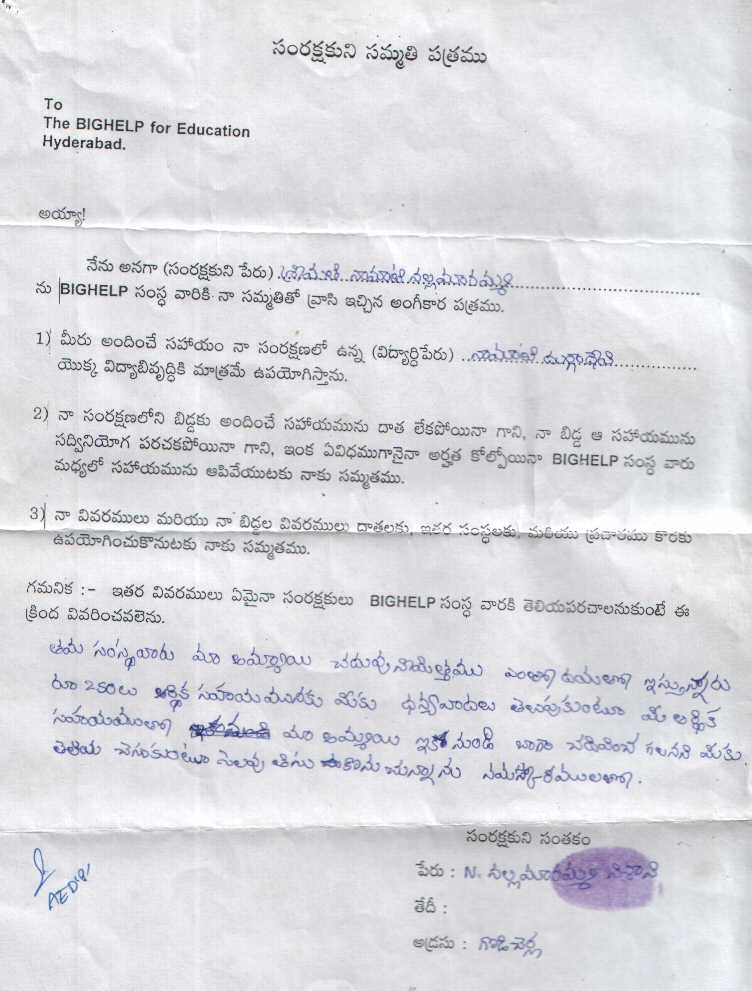 సంరక్షకుని సమ్మతి పత్రము
To
The BIGHELP for Education
Hyderabad.
అయ్యా!
నేను అనగా (సంరక్షకుని పేరు) శ్రీమతి నామాటి నల్లమారమ్మ
ను BIGHELP సంస్ధ వారికి నా సమ్మతితో వ్రాసి ఇచ్చిన అంగీకార పత్రము.
1) మీరు అందించే సహాయం నా సంరక్షణలో ఉన్న (విద్యార్ధిపేరు) నామాటి దుర్గాదేవి
యొక్క విద్యాబివృద్ధికి మాత్రమే ఉపయోగిస్తాను.
2) నా సంరక్షణలోని బిడ్డకు అందించే సహాయమును దాత లేకపోయినా గాని, నా బిడ్డ ఆ సహాయమును
సద్వినియోగ పరచకపోయినా గాని, ఇంక ఏవిధముగానైనా అర్హత కోల్పోయినా BIGHELP సంస్ధ వారు
మధ్యలో సహాయమును ఆపివేయుటకు నాకు సమ్మతము.
3) నా వివరములు మరియు నా బిడ్డల వివరములు దాతలకు, ఇతర సంస్ధలకు, మరియు ప్రచారము కొరకు
ఉపయోగించుకొనుటకు నాకు సమ్మతము.
గమనిక :- ఇతర వివరములు ఏమైనా సంరక్షకులు BIGHELP సంస్ధ వారకి తెలియపరచాలనుకుంటే ఈ
క్రింద వివరించవలెను.
తమ సంస్థవారు మా అమ్మాయి చదువు నిమిత్తము ఎంతో దయతో ఇస్తున్నారు
రూ 250లు ఆర్థిక సహాయమునకు మీకు ధన్యవాదలు తెలుపుకుంటూ మీ ఆర్థిక
సహాయముతో మా అమ్మాయి ఇక నుండి బాగా చదివించ గలనని మీకు
తెలియ చేసుకుంటూ సెలవు తీసుకొను చున్నాను నమస్కారములతో.
సంరక్షకుని సంతకం
పేరు : N. నల్లమారమ్మ నిశాని
తేదీ :
అడ్రసు : గొడిచెర్ల